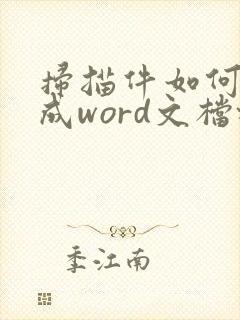 掃描件如何
成word文檔
季江南